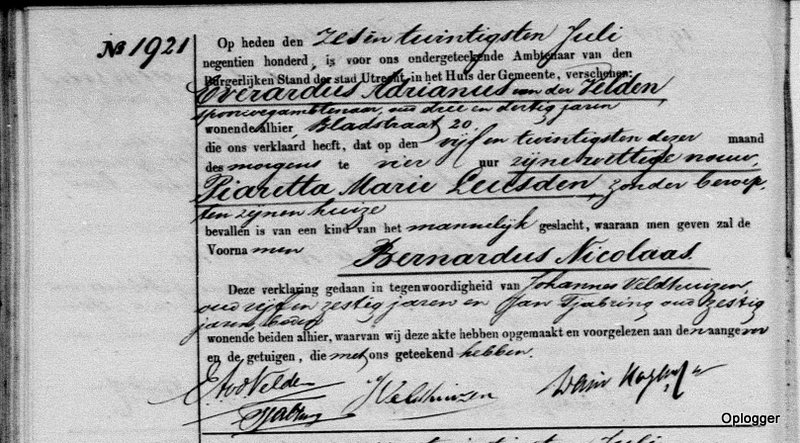 № 1921
Op heden den zes en twintigsten Juli
negentien honderd, is voor ons ondergeteekende Ambtenaar van den
Burgerlijken Stand der stad Utrecht, in het Huis der Gemeente, verschenen:
Everardus Adrianus van der Velden,
spoorwegambtenaar, oud drie en dertig jaren
wonende alhier, Bladstraat 20
die ons verklaard heeft, dat op den vijf en twintigsten dezer maand
des morgens te vier uur zijne wettige vrouw,
Piaretta Marie Leusden, zonder beroep,
ten zijnen huize
bevallen is van een kind van het mannelijk geslacht, waaraan men geven zal de
Voornamen
Bernardus Nicolaas.
Deze verklaring gedaan in tegenwoordigheid van Johannes Veldhuizen,
oud vijf en zestig jaren en Jan Tjabring oud zestig
jaren,
wonende beiden alhier, waarvan wij deze akte hebben opgemaakt en voorgelezen aan den aangever
en de getuigen, die met ons geteekend hebben.
EAvdVelden
JVeldhuizen
Tjabring
Oplogger
Juli